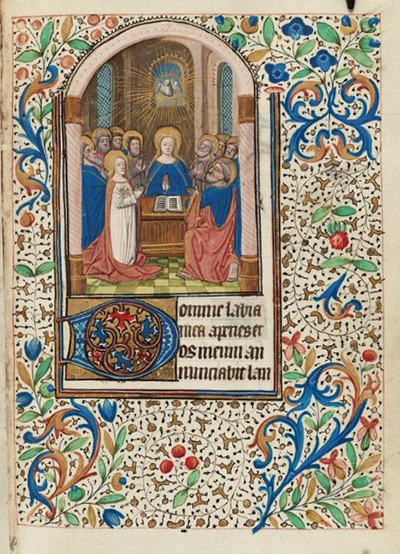 Domine labia
mea aperies et
os meum an
nunciabit lau